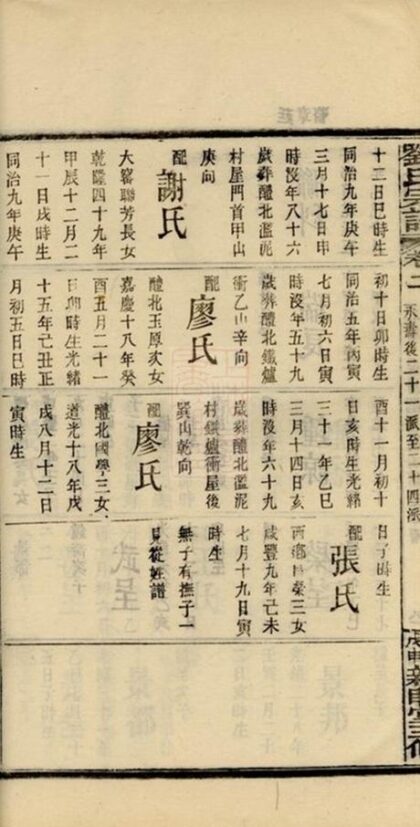 劉氏宗譜 卷二 永壽後二十一派至二十四派
十二日巳時生
同治九年庚午
三月十七日申
時沒年八十六
歲葬醴北濫泥
村屋門首甲山
庚向
配謝氏
大寨聯芳長女
乾隆四十九年
甲辰十二月二
十一日戌時生
同治九年庚午
初十日卯時生
同治五年丙寅
七月初六日寅
時沒年五十九
歲葬醴北鐵爐
衝乙山辛向
配廖氏
醴北玉原次女
嘉慶十八年癸
酉五月二十
日卯時生光緒
十五年己丑正
月初五日巳時
酉十一月初十
日亥時生光緒
三十一年乙巳
三月十四日亥
時沒年六十九
歲葬醴北濫泥
村鐵爐衝屋後
巽山乾向
配廖氏
醴北國學三女
道光十八年戊
戌八月十二日
寅時生
日子時生
配張氏
西鄉榮三女
咸豐九年己未
七月十九日寅
時生
無子有撫子一
見從姓譜